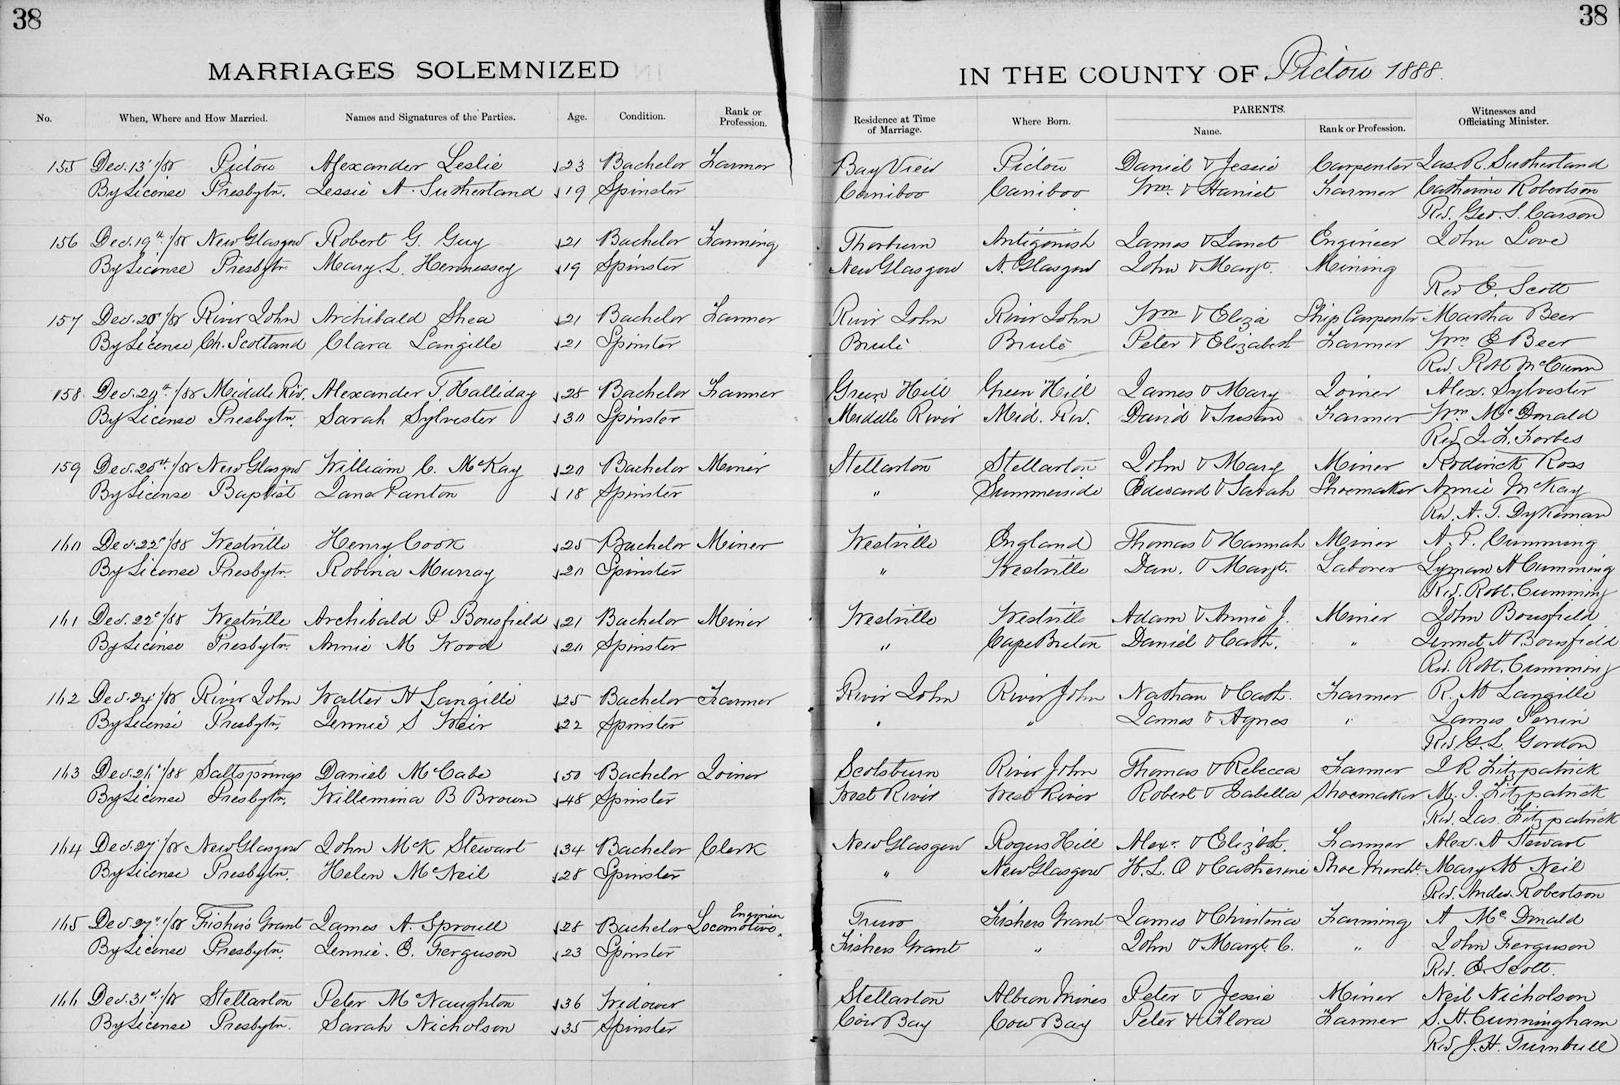 38
38
MARRIAGES SOLEMNIZED
IN THE COUNTY OF Pictou 1888.
No. When, Where and How Married. Names and Signatures of the Parties. Age. Condition. Rank or Profession. Residence at Time of Marriage. Where Born. PARENTS. Name. Rank or Profession. Witnesses and Officiating Minister.
155 Dec. 13 /88 Pictou Alexander Leslie 23 Bachelor Farmer Bay View Pictou Daniel & Jessie Carpenter Jas R. Sutherland
By License Presbytn. Jessie A. Sutherland 19 Spinster Cariboo Cariboo Wm. & Harriet Farmer Catherine Robertson
Rev. Geo. S. Carson
156 Dec. 19th /88 New Glasgow Robert G. Guy 21 Bachelor Farming Thorburn Antigonish James & Janet Engineer John Love
By License Presbytn Mary L. Hennessey 19 Spinster New Glasgow N. Glasgow John & Margt. Mining
Rev E. Scott
157 Dec. 20 /88 River John Archibald Shea 21 Bachelor Farmer River John River John Wm & Eliza Ship Carpenter Martha Beer
By License Ch. Scotland Clara Langille 21 Spinster Brulé Brulé Peter & Elizabeth Farmer Wm E Beer
Rev. Robt McCunn
158 Dec. 20th /88 Middle Riv. Alexander T. Halliday 28 Bachelor Farmer Green Hill Green Hill James & Mary Joiner Alex. Sylvester
By License Presbytn. Sarah Sylvester 30 Spinster Middle River Mid. Riv. David & Susan Farmer Wm McDonald
Rev J. F. Forbes
159 Dec. 20th /88 New Glasgow William C. McKay 20 Bachelor Miner Stellarton Stellarton John & Mary Miner Roderick Ross
By License Baptist Jane Panton 18 Spinster " Summerside Edward & Sarah Shoemaker Annie McKay
Rev. A. T. Dykeman
160 Dec. 22 /88 Westville Henry Cook 25 Bachelor Miner Westville England Thomas & Hannah Miner A. P. Cumming
By License Presbytn. Robina Murray 20 Spinster " Westville Dan. & Margt. Laborer Lyman A Cumming
Rev. Robt. Cumming
161 Dec. 22 /88 Westville Archibald P Bousfield 21 Bachelor Miner Westville Westville Adam & Annie J. Miner John Bousfield
By License Presbytn. Annie M Wood 20 Spinster " Cape Breton Daniel & Cath. " Bousfield
Rev. Robt. Cumming
162 Dec. 24 /88 River John Walter H Langille 25 Bachelor Farmer River John River John Nathan & Cath. Farmer R. M Langille
By License Presbytn. Jennie S Weir 22 Spinster " " James & Agnes " James Perrin
Rev G. L. Gordon
163 Dec. 26 /88 Saltsprings Daniel McCabe 50 Bachelor Joiner Scotsburn River John Thomas & Rebecca Farmer J R Fitzpatrick
By License Presbytn. Willemina B Brown 48 Spinster West River West River Robert & Isabella Shoemaker M. J. Fitzpatrick
Rev. Jas. Fitzpatrick
164 Dec. 27 /88 New Glasgow John McK Stewart 34 Bachelor Clerk New Glasgow Rogers Hill Alexr. & Elizbth. Farmer Alex. A Stewart
By License Presbytn. Helen McNeil 28 Spinster " New Glasgow H. L. O & Catherine Shoe Mercht. Mary M Neil
Rev. Andw. Robertson
165 Dec 27 /88 Fishers Grant James A. Sproull 28 Bachelor Locomotive Engineer Truro Fishers Grant James & Christina Farming A McDonald
By License Presbytn. Jennie. E. Ferguson 23 Spinster Fishers Grant " John & Margt. C. " John Ferguson
Rev. E. Scott.
166 Dec. 31st /88 Stellarton Peter McNaughton 36 Widower Stellarton Albion Mines Peter & Jessie Miner Neil Nicholson
By License Presbytn. Sarah Nicholson 35 Spinster Cow Bay Cow Bay Peter & Flora Farmer S. A. Cunningham
Rev J. H. Turnbull